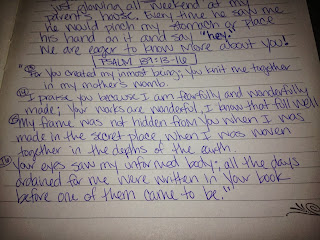 just glowing all weekend at my
parent's house. Every time he says me
he would pinch my stomach or place
his hand on it and say "hey."
We are eager to know more about you!
PSALM 139:13-16
"For you created my inmost being; you knit me together
in my mother's womb.
(14) I praise you because I am fearfully and wonderfully
made; your works are wonderful, I know that full well.
My frame was not hidden from you when I was
made in the secret place, when I was woven
together in the depths of the earth.
(16) Your eyes saw my unformed body; all the days
ordained for me were written in your book
before one of them came to be."